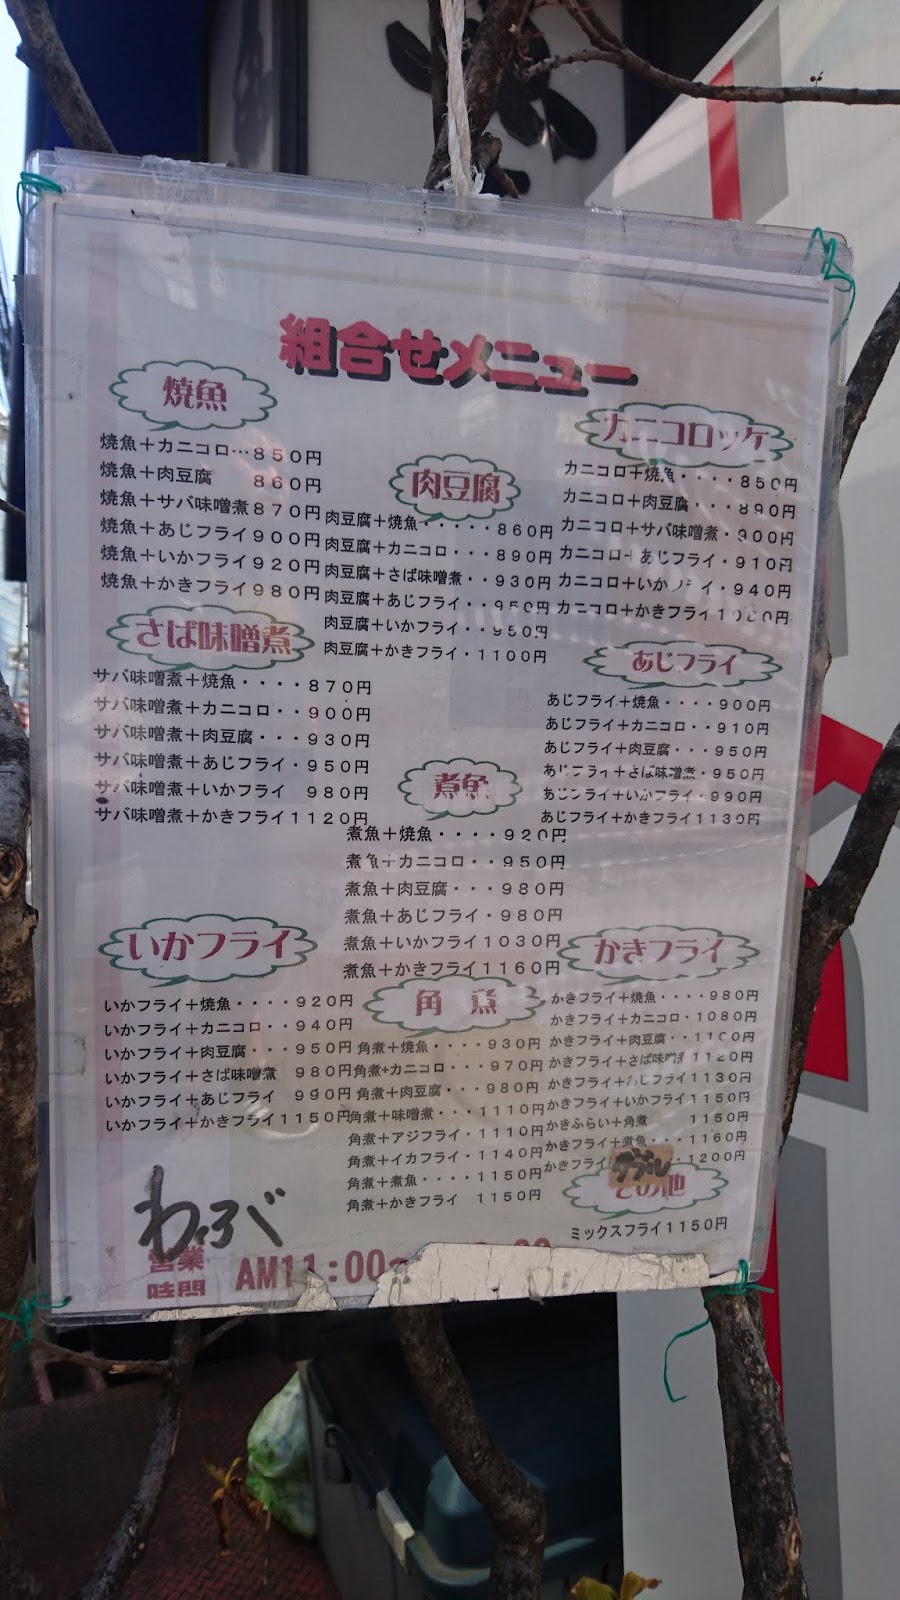 組合せメニュー
焼魚
焼魚＋カニコロ…850円
焼魚＋肉豆腐 860円
焼魚＋サバ味噌煮870円
焼魚＋あじフライ900円
焼魚＋いかフライ920円
焼魚＋かきフライ980円
肉豆腐
肉豆腐＋焼魚・・・・・860円
肉豆腐＋カニコロ・・・890円
肉豆腐＋さば味噌煮・・930円
肉豆腐＋あじフライ・・950円
肉豆腐＋いかフライ・・950円
肉豆腐＋かきフライ・1100円
カニコロッケ
カニコロ＋焼魚・・・・850円
カニコロ＋肉豆腐・・・890円
カニコロ＋サバ味噌煮・900円
カニコロ＋あじフライ・910円
カニコロ＋いかフライ・940円
カニコロ＋かきフライ
さば味噌煮
サバ味噌煮＋焼魚・・・・870円
サバ味噌煮＋カニコロ・・900円
サバ味噌煮＋肉豆腐・・・930円
サバ味噌煮＋あじフライ・950円
サバ味噌煮＋いかフライ 980円
サバ味噌煮＋かきフライ1120円
あじフライ
あじフライ＋焼魚・・・・900円
あじフライ＋カニコロ・・910円
あじフライ＋肉豆腐・・・950円
あじフライ＋さば味噌煮・950円
あじフライ＋いかフライ・990円
あじフライ＋かきフライ1130円
煮魚
煮魚＋焼魚・・・・920円
煮魚＋カニコロ・・950円
煮魚＋肉豆腐・・・980円
煮魚＋あじフライ・980円
煮魚＋いかフライ1030円
煮魚＋かきフライ1160円
いかフライ
いかフライ＋焼魚・・・・920円
いかフライ＋カニコロ・・940円
いかフライ＋肉豆腐・・・950円
いかフライ＋さば味噌煮 980円
いかフライ＋あじフライ 990円
いかフライ＋かきフライ1150円
角煮
角煮＋焼魚・・・・930円
角煮+カニコロ・・・970円
角煮＋肉豆腐・・・980円
角煮＋味噌煮・・・1110円
角煮＋アジフライ・1110円
角煮＋イカフライ・1140円
角煮＋煮魚・・・・1150円
角煮＋かきフライ 1150円
かきフライ
かきフライ＋焼魚・・・・980円
かきフライ＋カニコロ・1080円
かきフライ＋肉豆腐・・1100円
かきフライ＋さば味噌煮1120円
かきフライ＋あじフライ1130円
かきフライ＋いかフライ1150円
かきふらい＋角煮 1150円
かきフライ＋煮魚・・・1160円
かきフライ ダブル・1200円
その他
ミックスフライ1150円
わらぶ
営業時間 AM11:00